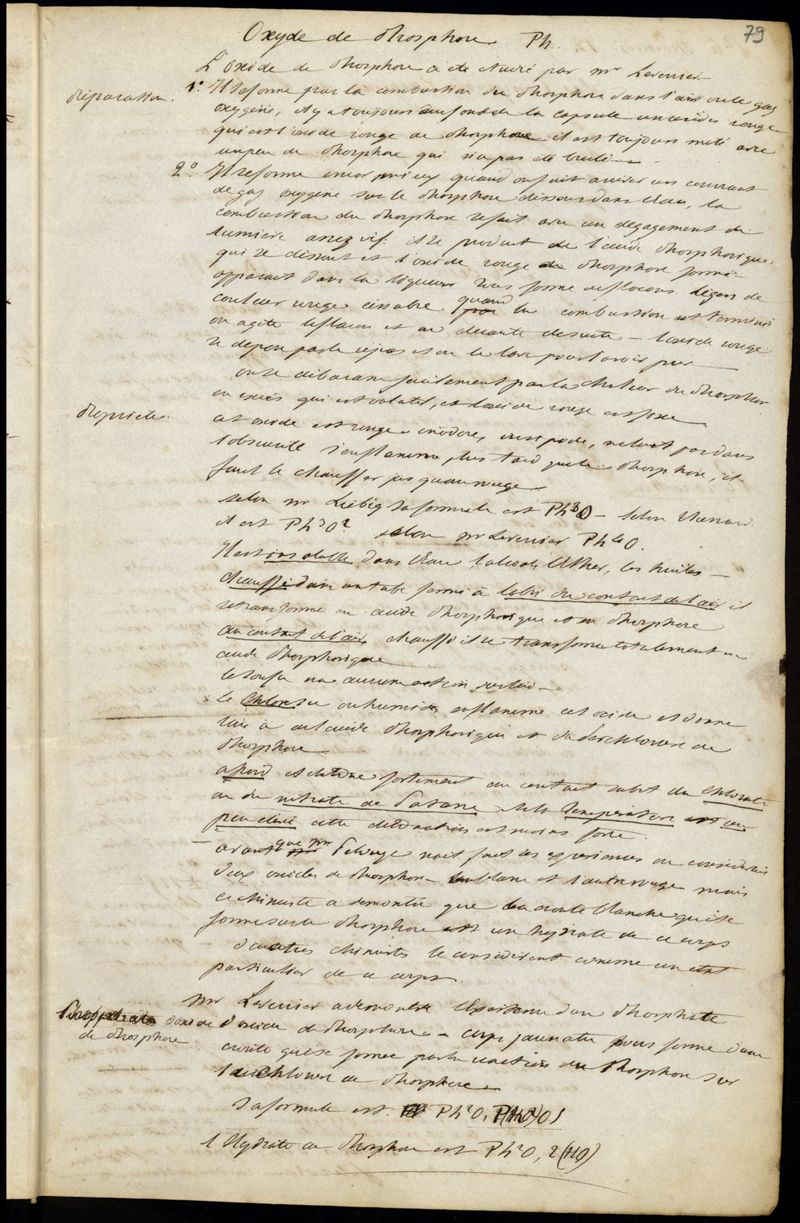 79
Oxyde de Phosphore Ph.
L'oxide de Phosphore a été étudié par mr Leverrier
préparation. 1° Il se forme par la combustion du Phosphore dans l'air ou le gaz
oxygène, il y a toujours au fond de la capsule un résidu rouge
qui est l'oxide rouge de Phosphore il est toujours mêlé avec
un peu de Phosphore qui n'a pas été brulé
2° Il se forme encor mieux quand on fait arriver un courant
de gaz oxygène sur le Phosphore dissous dans l'eau, la
combustion du Phosphore se fait avec un dégagement de
lumière assez vif. il se produit de l'acide Phosphorique
qui se dissout et l'oxide rouge de Phosphore formé
apparait dans la liqueur sous forme de flocons légers de
couleur rouge cinabre. quand la combustion est terminée
on agite le flacon et on décante de suite – l'oxide rouge
se depose par le repos et on le lave pour l'avoir pur
on se débarasse facilement par la chaleur du Phosphore
en excès qui est volatil, et l'oxide rouge est fixe
Propriétés. cet oxide est rouge inodore, insipide, ne luit pas dans
l'obscurité s'enflamme plus tard que le Phosphore, il
faut le chauffer jusqu'au rouge
selon mr Liebig sa formule est Ph3O – selon Thenard
il est Ph3O2 selon mr Leverrier Ph4O.
Il est insoluble dans l'eau l'alcool, l'Ether, les huiles –
chauffé dans un tube fermé à l'abri du contact de l'air il
se transforme en acide Phosphorique et en Phosphore
au contact de l'air chauffé il se transforme totalement en
acide Phosphorique
le soufre n'a aucune action sur lui –
x le Chlore sec ou humide enflamme cet oxide et donne
lieu à de l'acide Phosphorique et du perchlorure de
Phosphore
à froid il détonne fortement au contact subit du chlorate
ou du nitrate de Potasse si la température est un
peu élevé cette détonation est moins forte
– avant que mr Pelouze n'ait fait ses expériences on considérait
deux oxides de Phosphore un blanc et l'autre rouge mais
ce chimiste a démontré que la croute blanche qui se
forme sur le Phosphore est un hydrate de ce corps
d'autres chimistes le considèrent comme un état
particulier de ce corps.
mr Leverrier a démontré l'existence d'un Phosphate
d'oxide de Phosphore d'oxide de Phosphore – corps jaunatre sous forme d'une
croute qui se forme par la réaction du Phosphore sur
le Chlorure de Phosphore
sa formule est.
l'Hydrate de Phosphore est